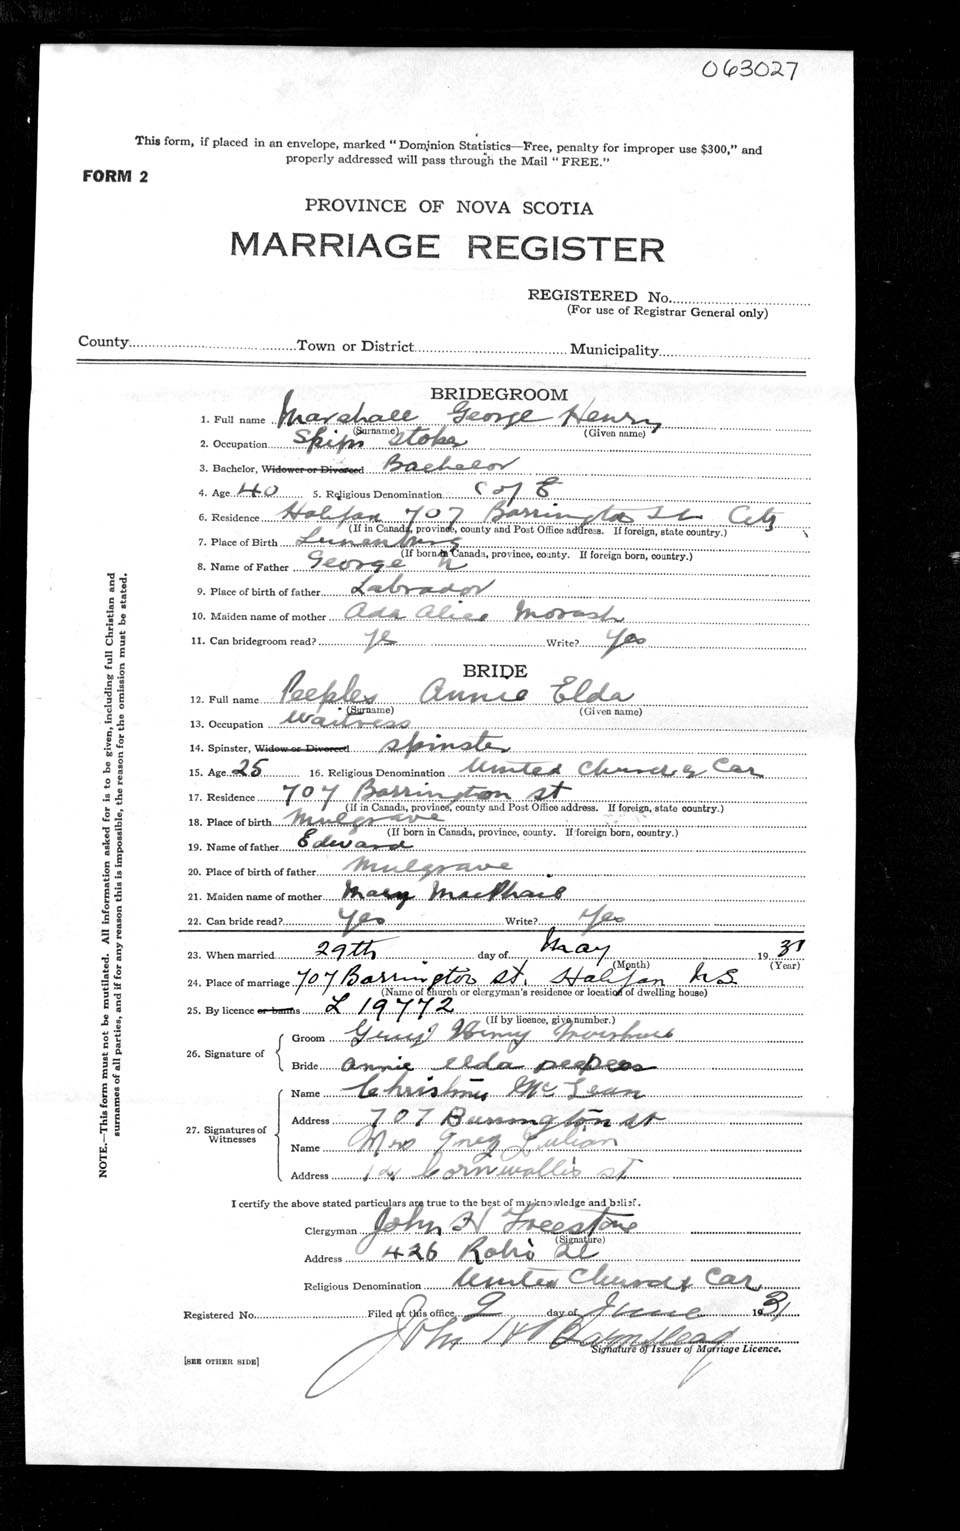 063027
This form, if placed in an envelope, marked "Dominion Statistics—Free, penalty for improper use $300," and
properly addressed will pass through the Mail "FREE."
FORM 2
PROVINCE OF NOVA SCOTIA
MARRIAGE REGISTER
REGISTERED No.
(For use of Registrar General only)
County Town or District Municipality
BRIDEGROOM
1. Full name Marshall George Henry
(Surname) (Given name)
2. Occupation Ships Stoker
3. Bachelor, Widower or Divorced Bachelor
4. Age 40 5. Religious Denomination C of E
6. Residence Halifax 707 Barrington St City
(If in Canada, province, county and Post Office address. If foreign, state country.)
7. Place of Birth Lunenburg
(If born in Canada, province, county. If foreign born, country.)
8. Name of Father George
9. Place of birth of father Labrador
10. Maiden name of mother Ada Alice Morash
11. Can bridegroom read? yes Write? Yes
BRIDE
12. Full name Peeples Annie Elda
(Surname) (Given name)
13. Occupation Waitress
14. Spinster, Widow or Divorced Spinster
15. Age 25 16. Religious Denomination United Church of Can
17. Residence 707 Barrington St
(If in Canada, province, county and Post Office address. If foreign, state country.)
18. Place of birth Mulgrave
(If born in Canada, province, county. If foreign born, country.)
19. Name of father Edward
20. Place of birth of father Mulgrave
21. Maiden name of mother Mary MacPhail
22. Can bride read? Yes Write? Yes
23. When married 29th day of May 1931
(Month) (Year)
24. Place of marriage 707 Barrington St. Halifax N.S.
(Name of church or clergyman's residence or location of dwelling house)
25. By licence or banns L 19772
(If by licence, give number.)
26. Signature of
Groom Henry
Bride annie elda peeples
27. Signatures of Witnesses
Name Christine McLean
Address 707 Barrington St
Name Mrs Julian
Address Cornwallis St
I certify the above stated particulars are true to the best of my knowledge and belief.
Clergyman John H Freestone
(Signature)
Address 426 Robie St
Religious Denomination United Church of Can
Registered No. Filed at this office 2 day of June 1931
John
Signature of Issuer of Marriage Licence.
[SEE OTHER SIDE]
NOTE.—This form must not be mutilated. All information asked for is to be given, including full Christian and
surnames of all parties, and if for any reason this is impossible, the reason for the omission must be stated.